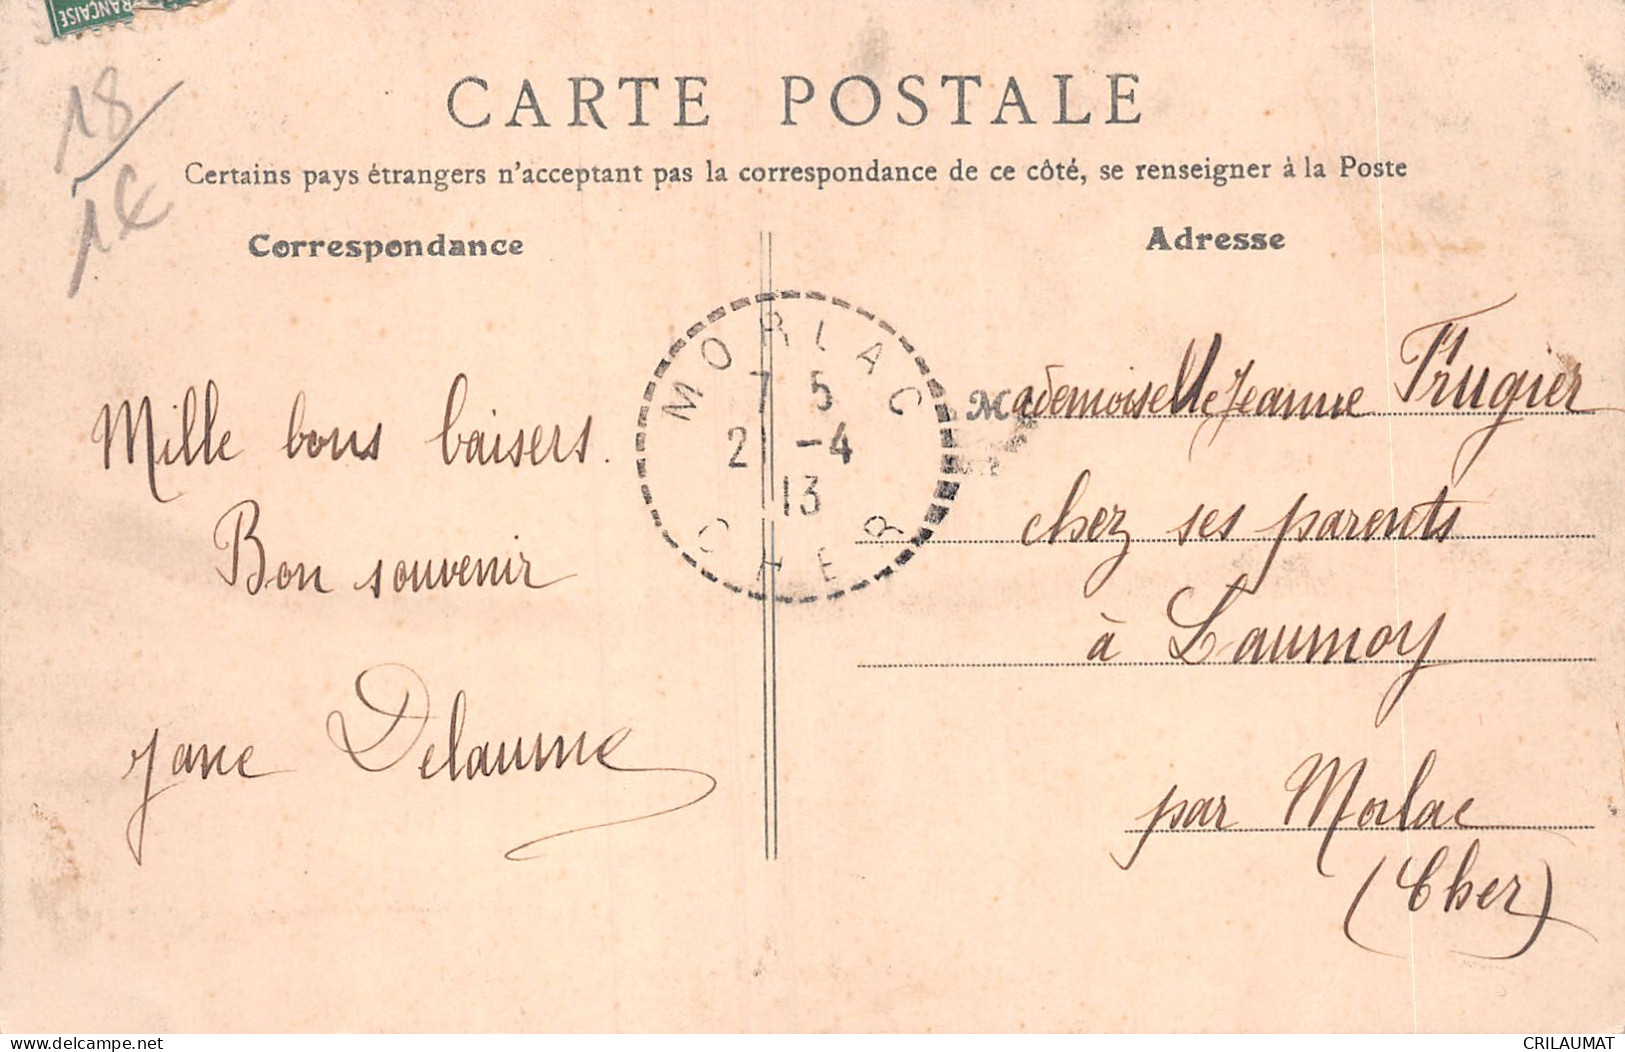 FRANÇAISE
18
1€
CARTE POSTALE
Certains pays étrangers n'acceptant pas la correspondance de ce côté, se renseigner à la Poste
Correspondance
Adresse
MORLAC
7 5
21 -4
13
CHER
Mille bons baisers.
Bon souvenir
Jane Delaume
Mademoiselle Jeanne Frugier
chez ses parents
à Launoy
par Morlac
(Cher)
delcampe.net
CRILAUMAT